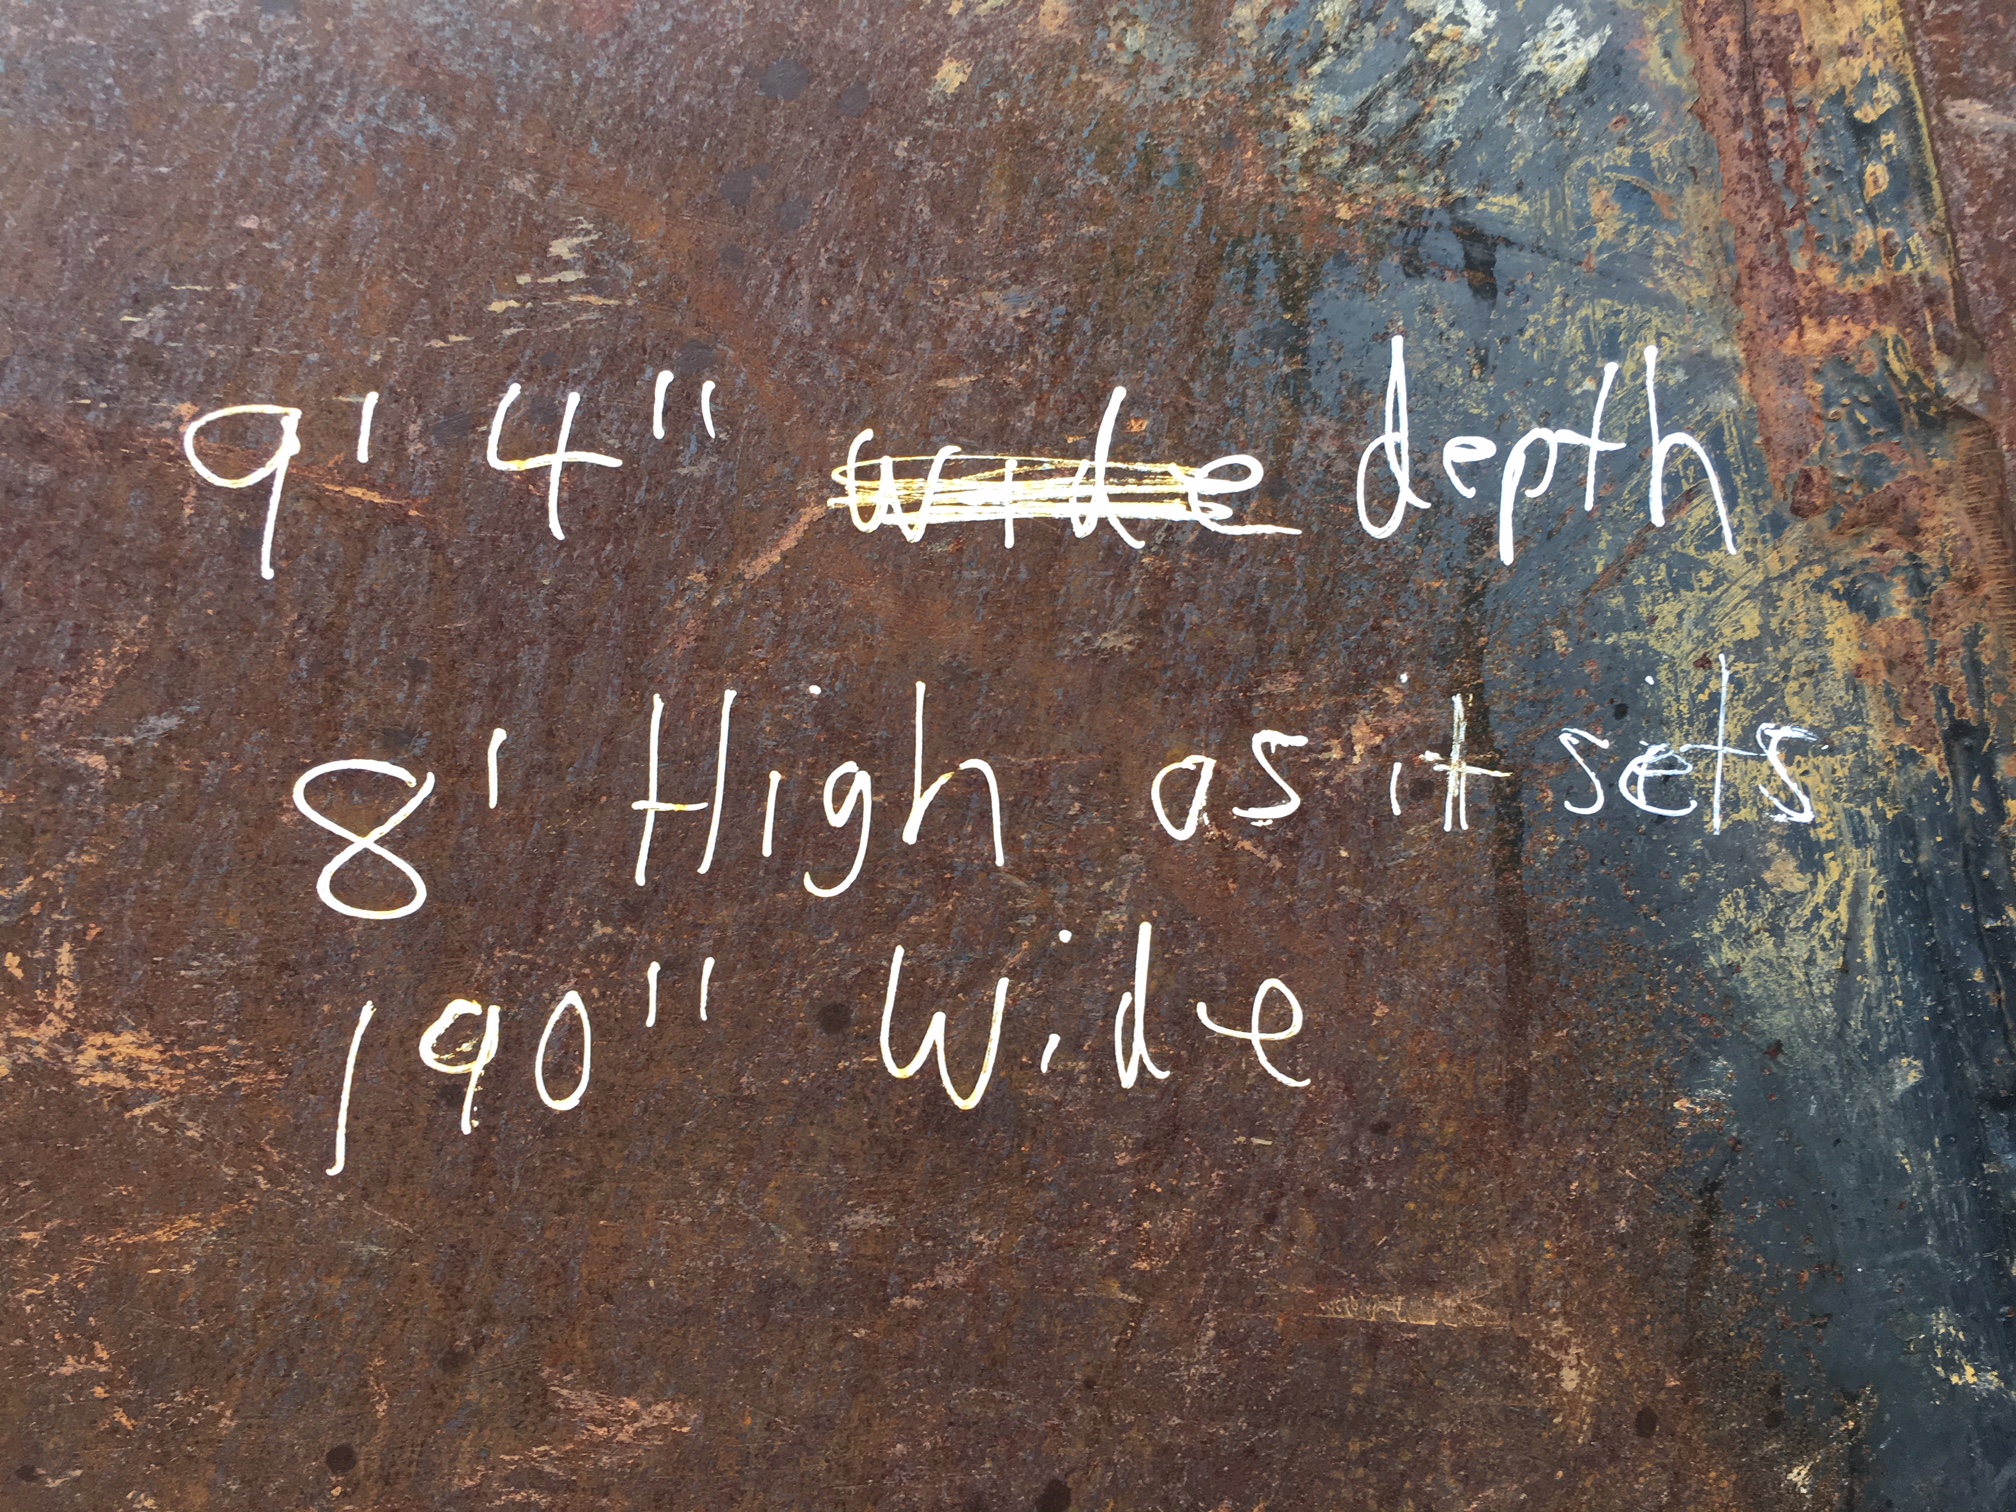 9' 4" wide depth
8' High as it sets
190" Wide